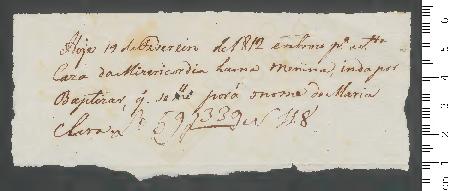 Hoje 19 de Fevereiro de 1812 entrou pª esta
Caza da Mizericordia huma menina, inda por
Baptizar, q. se lhe porá o nome de Maria
Clara
1 2 3 4 5 6
cm